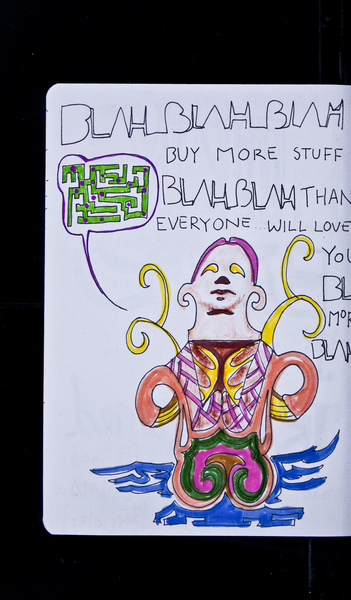 BLAH BLAH BLAH
BUY MORE STUFF
BLAH BLAH THAN
EVERYONE... WILL LOVE
YOU
BL
MOR
BLAH